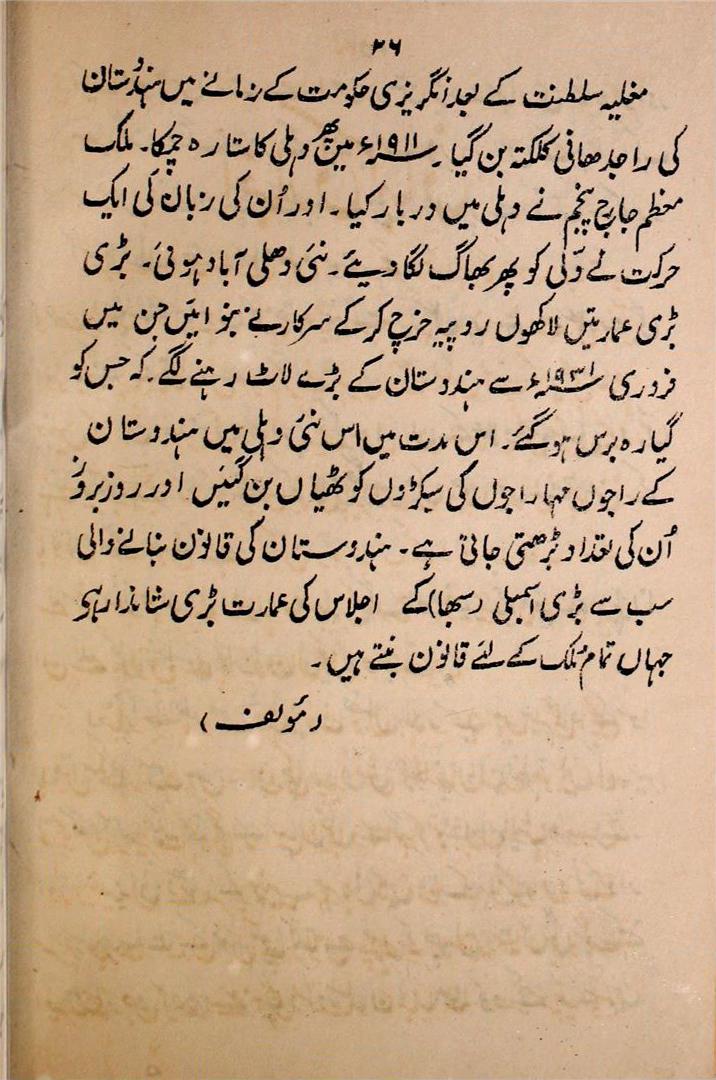 ۲۶
مغلیہ سلطنت کے بعد انگریزی حکومت کے زمانے میں ہندوستان
کی راجدھانی کلکتہ بن گیا۔ ۱۹۱۱ء میں پھر دہلی کا ستارہ چمکا۔ ملک
معظم جارج پنجم نے دہلی میں دربار کیا۔ اور اُن کی زبان کی ایک
حرکت نے دلّی کو پھر بھاگ لگا دیئے۔ نئی دھلی آباد ہوئی۔ بڑی
بڑی عمارتیں لاکھوں روپیہ خرچ کر کے سرکار نے بنوائیں جن میں
فروری ۱۹۳۱ء سے ہندوستان کے بڑے لاٹ رہنے لگے۔ کہ جس کو
گیارہ برس ہو گئے۔ اس مدت میں اس نئی دہلی میں ہندوستان
کے راجوں مہاراجوں کی سیکڑوں کوٹھیاں بن گئیں اور روز بروز
اُن کی تعداد بڑھتی جاتی ہے۔ ہندوستان کی قانون بنانے والی
سب سے بڑی اسمبلی (سبھا) کے اجلاس کی عمارت بڑی شاندار ہی
جہاں تمام ملک کے لئے قانون بنتے ہیں۔
(مؤلف)